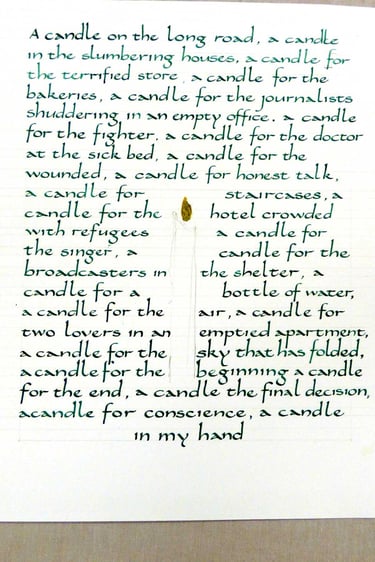 A candle on the long road, a candle
in the slumbering houses, a candle for
the terrified store, a candle for the
bakeries, a candle for the journalists
shuddering in an empty office. a candle
for the fighter, a candle for the doctor
at the sick bed, a candle for the
wounded, a candle for honest talk,
a candle for staircases, a
candle for the hotel crowded
with refugees a candle for
the singer, a candle for the
broadcasters in the shelter, a
candle for a bottle of water,
a candle for the air, a candle for
two lovers in an emptied apartment,
a candle for the sky that has folded,
a candle for the beginning a candle
for the end, a candle the final decision,
acandle for conscience, a candle
in my hand